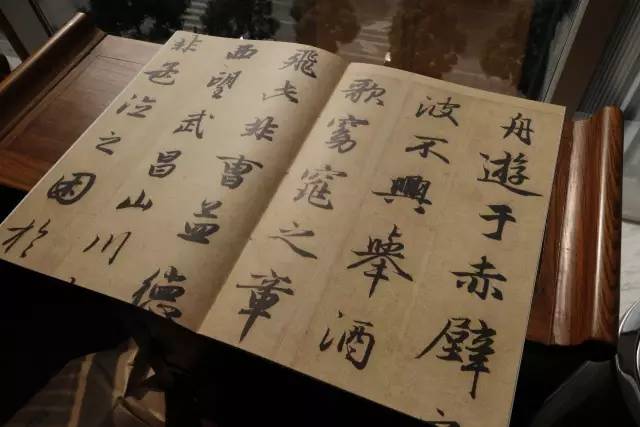 舟遊于赤壁
波不興舉酒
歌窈窕之章
飛此非曹孟德
西望武昌山川
非孟德之困於